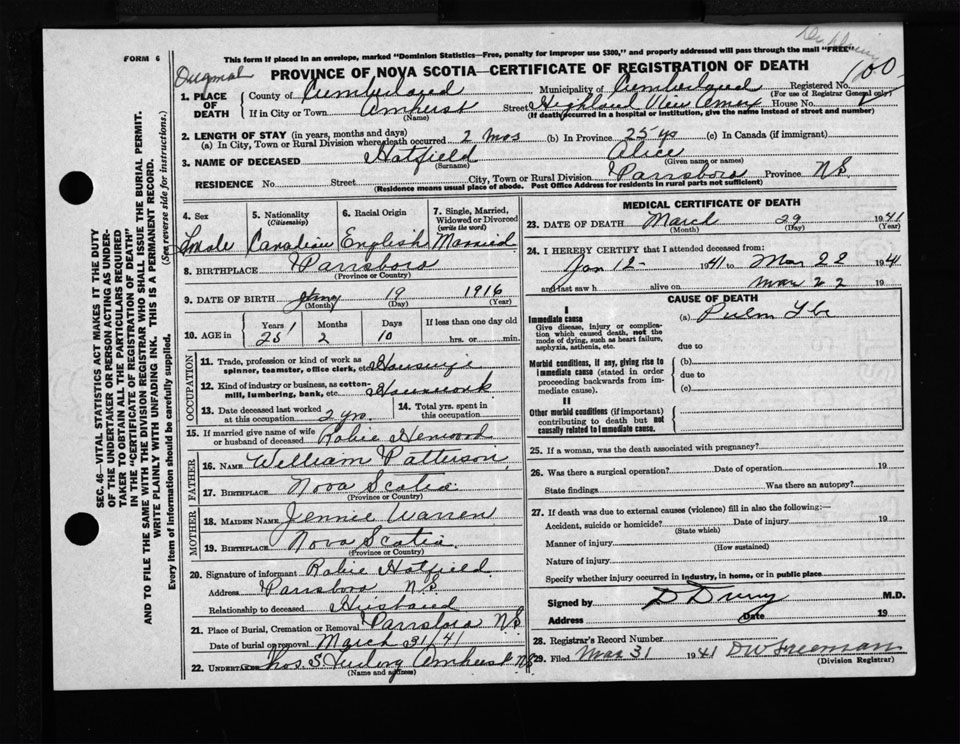 FORM 6
This form if placed in an envelope, marked "Dominion Statistics—Free, penalty for improper use $300," and properly addressed will pass through the mail "FREE"
PROVINCE OF NOVA SCOTIA—CERTIFICATE OF REGISTRATION OF DEATH
1. PLACE OF DEATH
County of Cumberland Municipality of Cumberland Registered No. 100
(For use of Registrar General only)
If in City or Town Amherst Street Highland View Annex House No.
(Name) (If death occurred in a hospital or institution, give the name instead of street and number)
2. LENGTH OF STAY (in years, months and days)
(a) In City, Town or Rural Division where death occurred 2 mos (b) In Province 25 yrs (c) In Canada (if immigrant)
3. NAME OF DECEASED Hatfield Alice
(Surname) (Given name or names)
RESIDENCE No. Street City, Town or Rural Division Parrsboro Province NS
(Residence means usual place of abode. Post Office Address for residents in rural parts not sufficient)
4. Sex 5. Nationality (Citizenship) 6. Racial Origin 7. Single, Married, Widowed or Divorced (write the word)
Female Canadian English Married
8. BIRTHPLACE Parrsboro
(Province or Country)
9. DATE OF BIRTH 19 1916
(Month) (Day) (Year)
10. AGE in Years Months Days If less than one day old
25 2 10 hrs. or min.
OCCUPATION
11. Trade, profession or kind of work as spinner, teamster, office clerk, etc. Housewife
12. Kind of industry or business, as cotton-mill, lumbering, bank, etc. Housework
13. Date deceased last worked at this occupation 2 yrs. 14. Total yrs. spent in this occupation
15. If married give name of wife or husband of deceased Robie
FATHER
16. NAME William Patterson
17. BIRTHPLACE Nova Scotia
(Province or Country)
MOTHER
18. MAIDEN NAME Jennie Warren
19. BIRTHPLACE Nova Scotia
(Province or Country)
20. Signature of informant Robie Hatfield
Address Parrsboro N.S.
Relationship to deceased Husband
21. Place of Burial, Cremation or Removal Parrsboro NS
Date of burial or removal March 31/41
22. Undertaker Thos S Amherst NS
(Name and address)
MEDICAL CERTIFICATE OF DEATH
23. DATE OF DEATH March 29 1941
(Month) (Day) (Year)
24. I HEREBY CERTIFY that I attended deceased from:
Jan 12 1941 to Mar 22 1941
and last saw h alive on Mar 22 19
CAUSE OF DEATH
I
Immediate cause (a) Pulm Tbc
Give disease, injury or complication which caused death, not the mode of dying, such as heart failure, asphyxia, asthenia, etc.
due to
Morbid conditions, if any, giving rise to immediate cause (stated in order proceeding backwards from immediate cause).
(b)
due to
(c)
II
Other morbid conditions (if important) contributing to death but not causally related to immediate cause.
25. If a woman, was the death associated with pregnancy?
26. Was there a surgical operation? Date of operation 19
State findings Was there an autopsy?
27. If death was due to external causes (violence) fill in also the following:—
Accident, suicide or homicide? Date of injury 19
(State which)
Manner of injury
(How sustained)
Nature of injury
Specify whether injury occurred in industry, in home, or in public place
Signed by D Drury M.D.
Address Date 19
28. Registrar's Record Number
29. Filed Mar 31 1941 DW Freeman
(Division Registrar)
SEC. 46—VITAL STATISTICS ACT MAKES IT THE DUTY
OF THE UNDERTAKER OR PERSON ACTING AS UNDER-
TAKER TO OBTAIN ALL THE PARTICULARS REQUIRED
IN THE "CERTIFICATE OF REGISTRATION OF DEATH"
AND TO FILE THE SAME WITH THE DIVISION REGISTRAR WHO SHALL ISSUE THE BURIAL PERMIT.
WRITE PLAINLY WITH UNFADING INK. THIS IS A PERMANENT RECORD.
Every item of information should be carefully supplied. (See reverse side for instructions.)